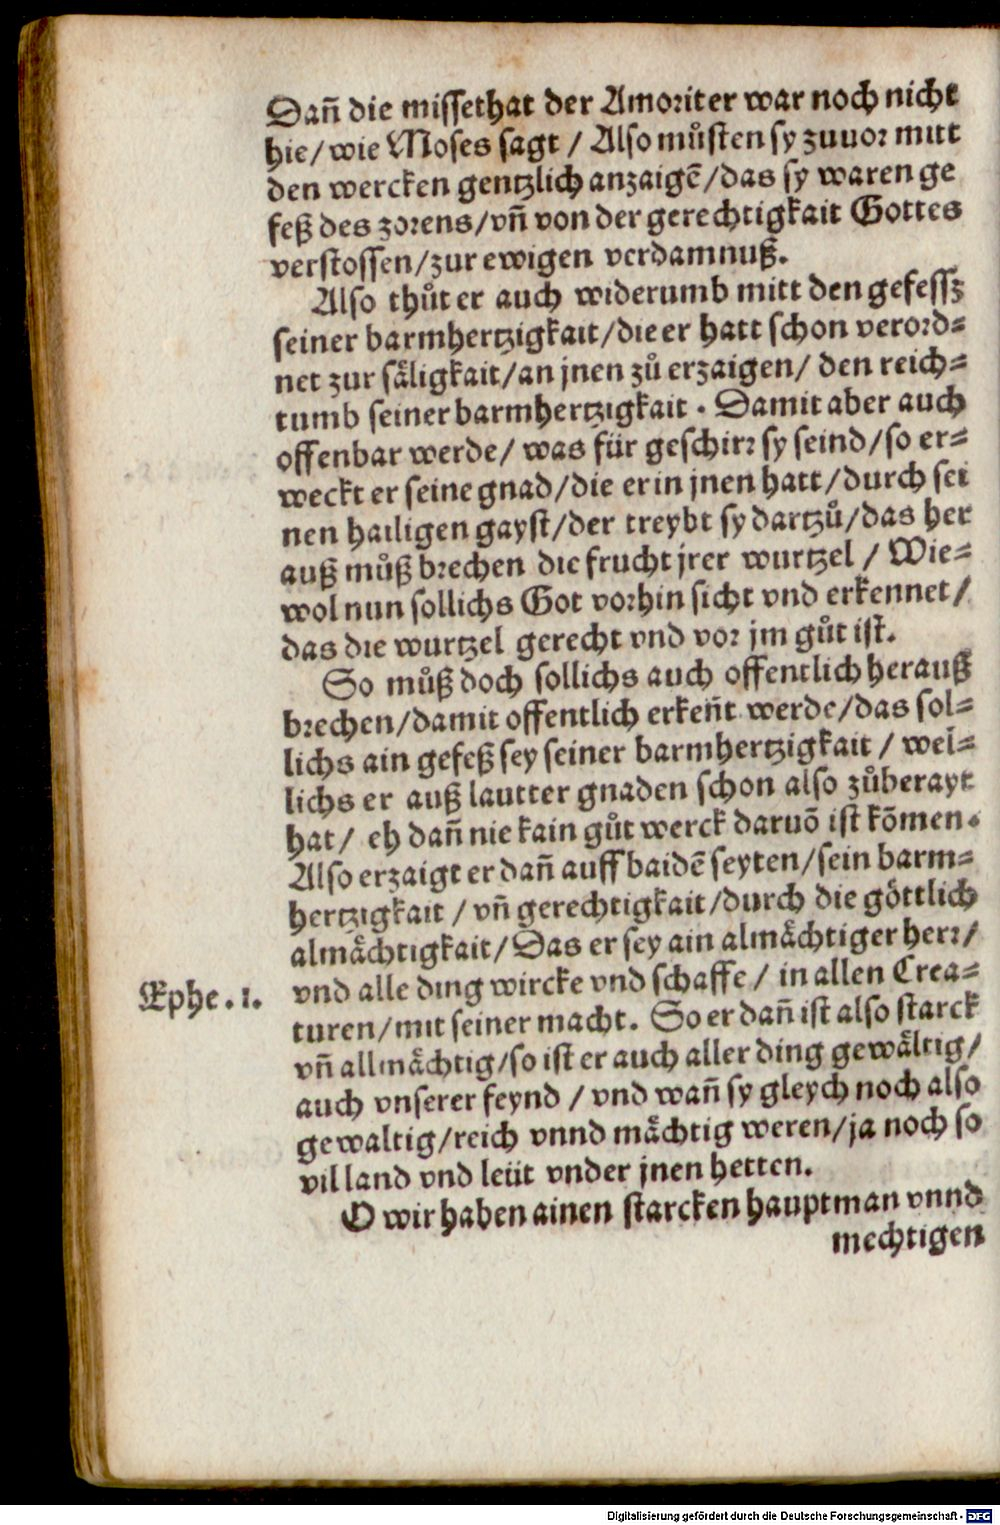 Dañ die missethat der Amoriter war noch nicht
hie/ wie Moses sagt / Also můsten sy zuuor mitt
den wercken gentzlich anzaigẽ/das sy waren ge
feß des zorens/vñ von der gerechtigkait Gottes
verstossen/zur ewigen verdamnuß.
Also thůt er auch widerumb mitt den gefessz
seiner barmhertzigkait/die er hatt schon verord=
net zur säligkait/an jnen zů erzaigen/ den reich=
tumb seiner barmhertzigkait . Damit aber auch
offenbar werde/ was für geschirr sy seind/so er=
weckt er seine gnad/die er in jnen hatt/durch sei
nen hailigen gayst/der treybt sy dartzů/das her
auß můß brechen die frucht jrer wurtzel / Wie=
wol nun sollichs Got vorhin sicht vnd erkennet/
das die wurtzel gerecht vnd vor jm gůt ist.
So můß doch sollichs auch offentlich herauß
brechen/damit offentlich erkeñt werde/das sol=
lichs ain gefeß sey seiner barmhertzigkait / wel=
lichs er auß lautter gnaden schon also zůberayt
hat/ eh dañ nie kain gůt werck daruõ ist kõmen.
Also erzaigt er dañ auff baidẽ seyten/sein barm=
hertzigkait / vñ gerechtigkait/durch die göttlich
almächtigkait/Das er sey ain almächtiger herr/
Ephe . 1. vnd alle ding wircke vnd schaffe/ in allen Crea=
turen/mit seiner macht. So er dañ ist also starck
vñ allmächtig/so ist er auch aller ding gewältig/
auch vnserer feynd / vnd wañ sy gleych noch also
gewaltig/reich vnnd mächtig weren/ja noch so
vil land vnd leüt vnder jnen hetten.
O wir haben ainen starcken hauptman vnnd
mechtigen
Digitalisierung gefördert durch die Deutsche Forschungsgemeinschaft - DFG